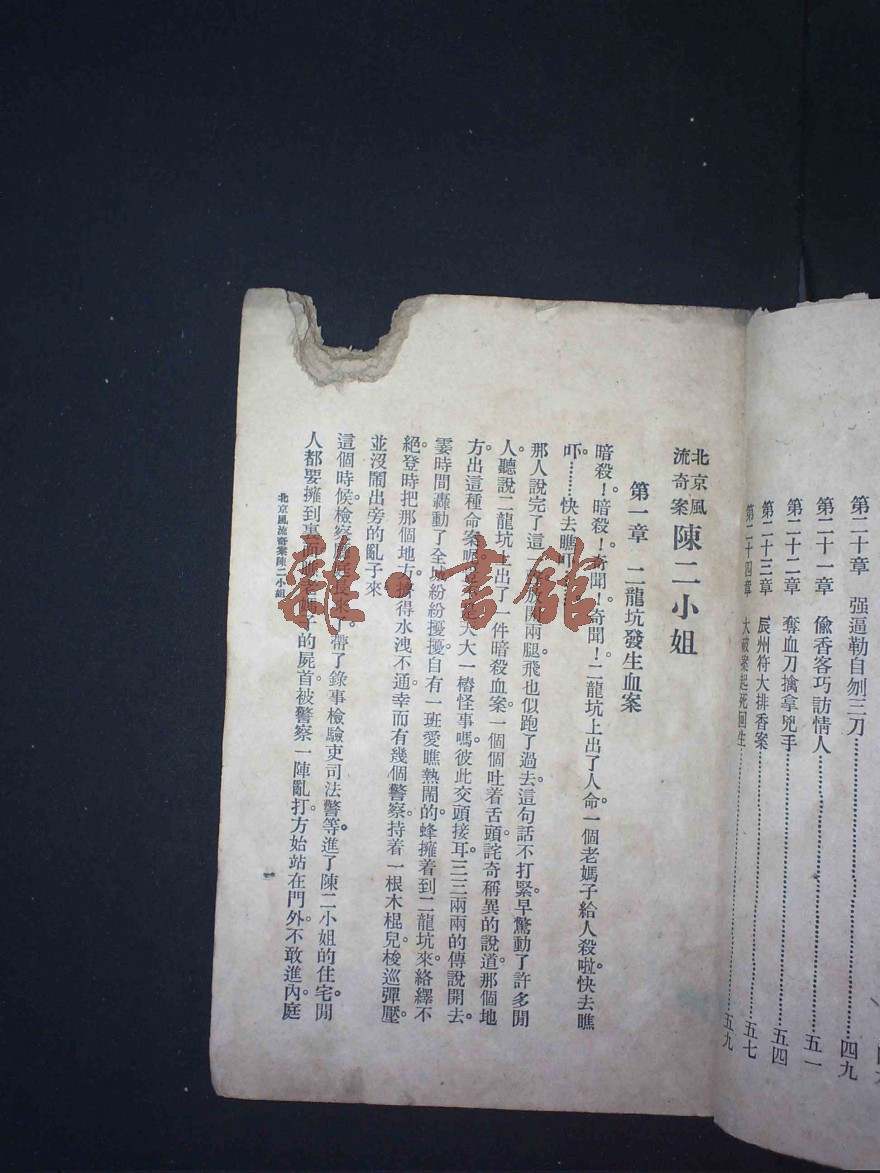 第二十章　强逼勒自刎三刀………………四九
第二十一章　偸香客巧訪情人………………五一
第二十二章　奪血刀擒拿兇手………………五四
第二十三章　辰州符大排香案………………五七
第二十四章　大破案起死回生………………五九
北京風流奇案　陳二小姐
第一章　二龍坑發生血案
暗殺！暗殺！奇聞！奇聞！二龍坑上出了人命。一個老媽子給人殺啦。快去瞧
吓……快去瞧吓
那人說完了這 放開兩腿飛也似跑了過去。這句話不打緊。早驚動了許多閒
人。聽說二龍坑上出了 件暗殺血案。一個個吐着舌頭詫奇稱異的說道。那個地
方出這種命案 大大一樁怪事嗎。彼此交頭接耳三三兩兩的傳說開去。
霎時間轟動了全城紛紛擾擾。自有一班愛瞧熱鬧的蜂擁着到二龍坑來。絡繹不
絕。登時把那個地方 得水洩不通。幸而有幾個警察持着一根木棍兒梭巡彈壓。
並沒鬧出旁的亂子來
這個時候。檢察 長來了。帶了錄事檢驗吏司法警等。進了陳二小姐的住宅。閒
人都要擁到裏面 子的屍首。被警察一陣亂打。方始站在門外。不敢進內。庭
北京風流奇案陳二小姐
一
雜·書館